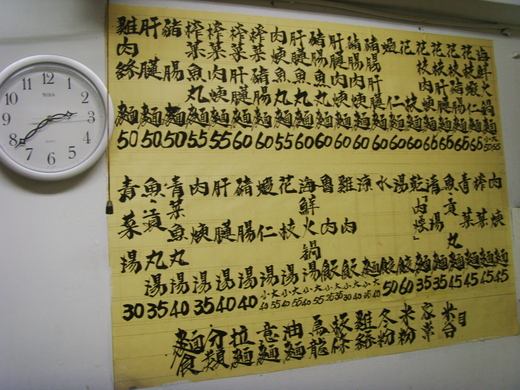 12 1 2 3 4 5 6 7 8 9 10 11
QUARTZ
雞肉絲麵 50
肝麵 50
豬腸麵 50
榨菜魚丸麵 55
榨菜肉焿麵 55
榨菜肝麵 60
榨菜豬腸麵 60
肉焿魚丸麵 55
肝魚丸麵 60
豬腸魚丸麵 60
肝肉焿麵 60
豬腸肉焿麵 60
豬腸肝麵 60
蝦仁麵 60
花枝麵 60
花枝肉焿麵 65
花枝肝麵 65
花枝豬腸麵 65
花枝蝦仁麵 65
海鮮火鍋麵
青菜湯 30
魚、貢丸湯 35
青菜魚丸湯 40
肉焿湯 35
肝湯 40
豬腸湯 40
蝦仁湯
花枝湯
海鮮火鍋湯
魯肉飯 小 大
雞肉飯 小 大
涼麵 小 大
水餃 50
湯餃 60
乾「肉燥」麵 35
清湯麵 35
魚、貢丸麵 45
青菜麵
榨菜麵 45
肉焿麵 45
麵食分類
拉麵
意麵
油麵
烏龍
板條
雞絲
冬粉
米粉
家常
米苔目